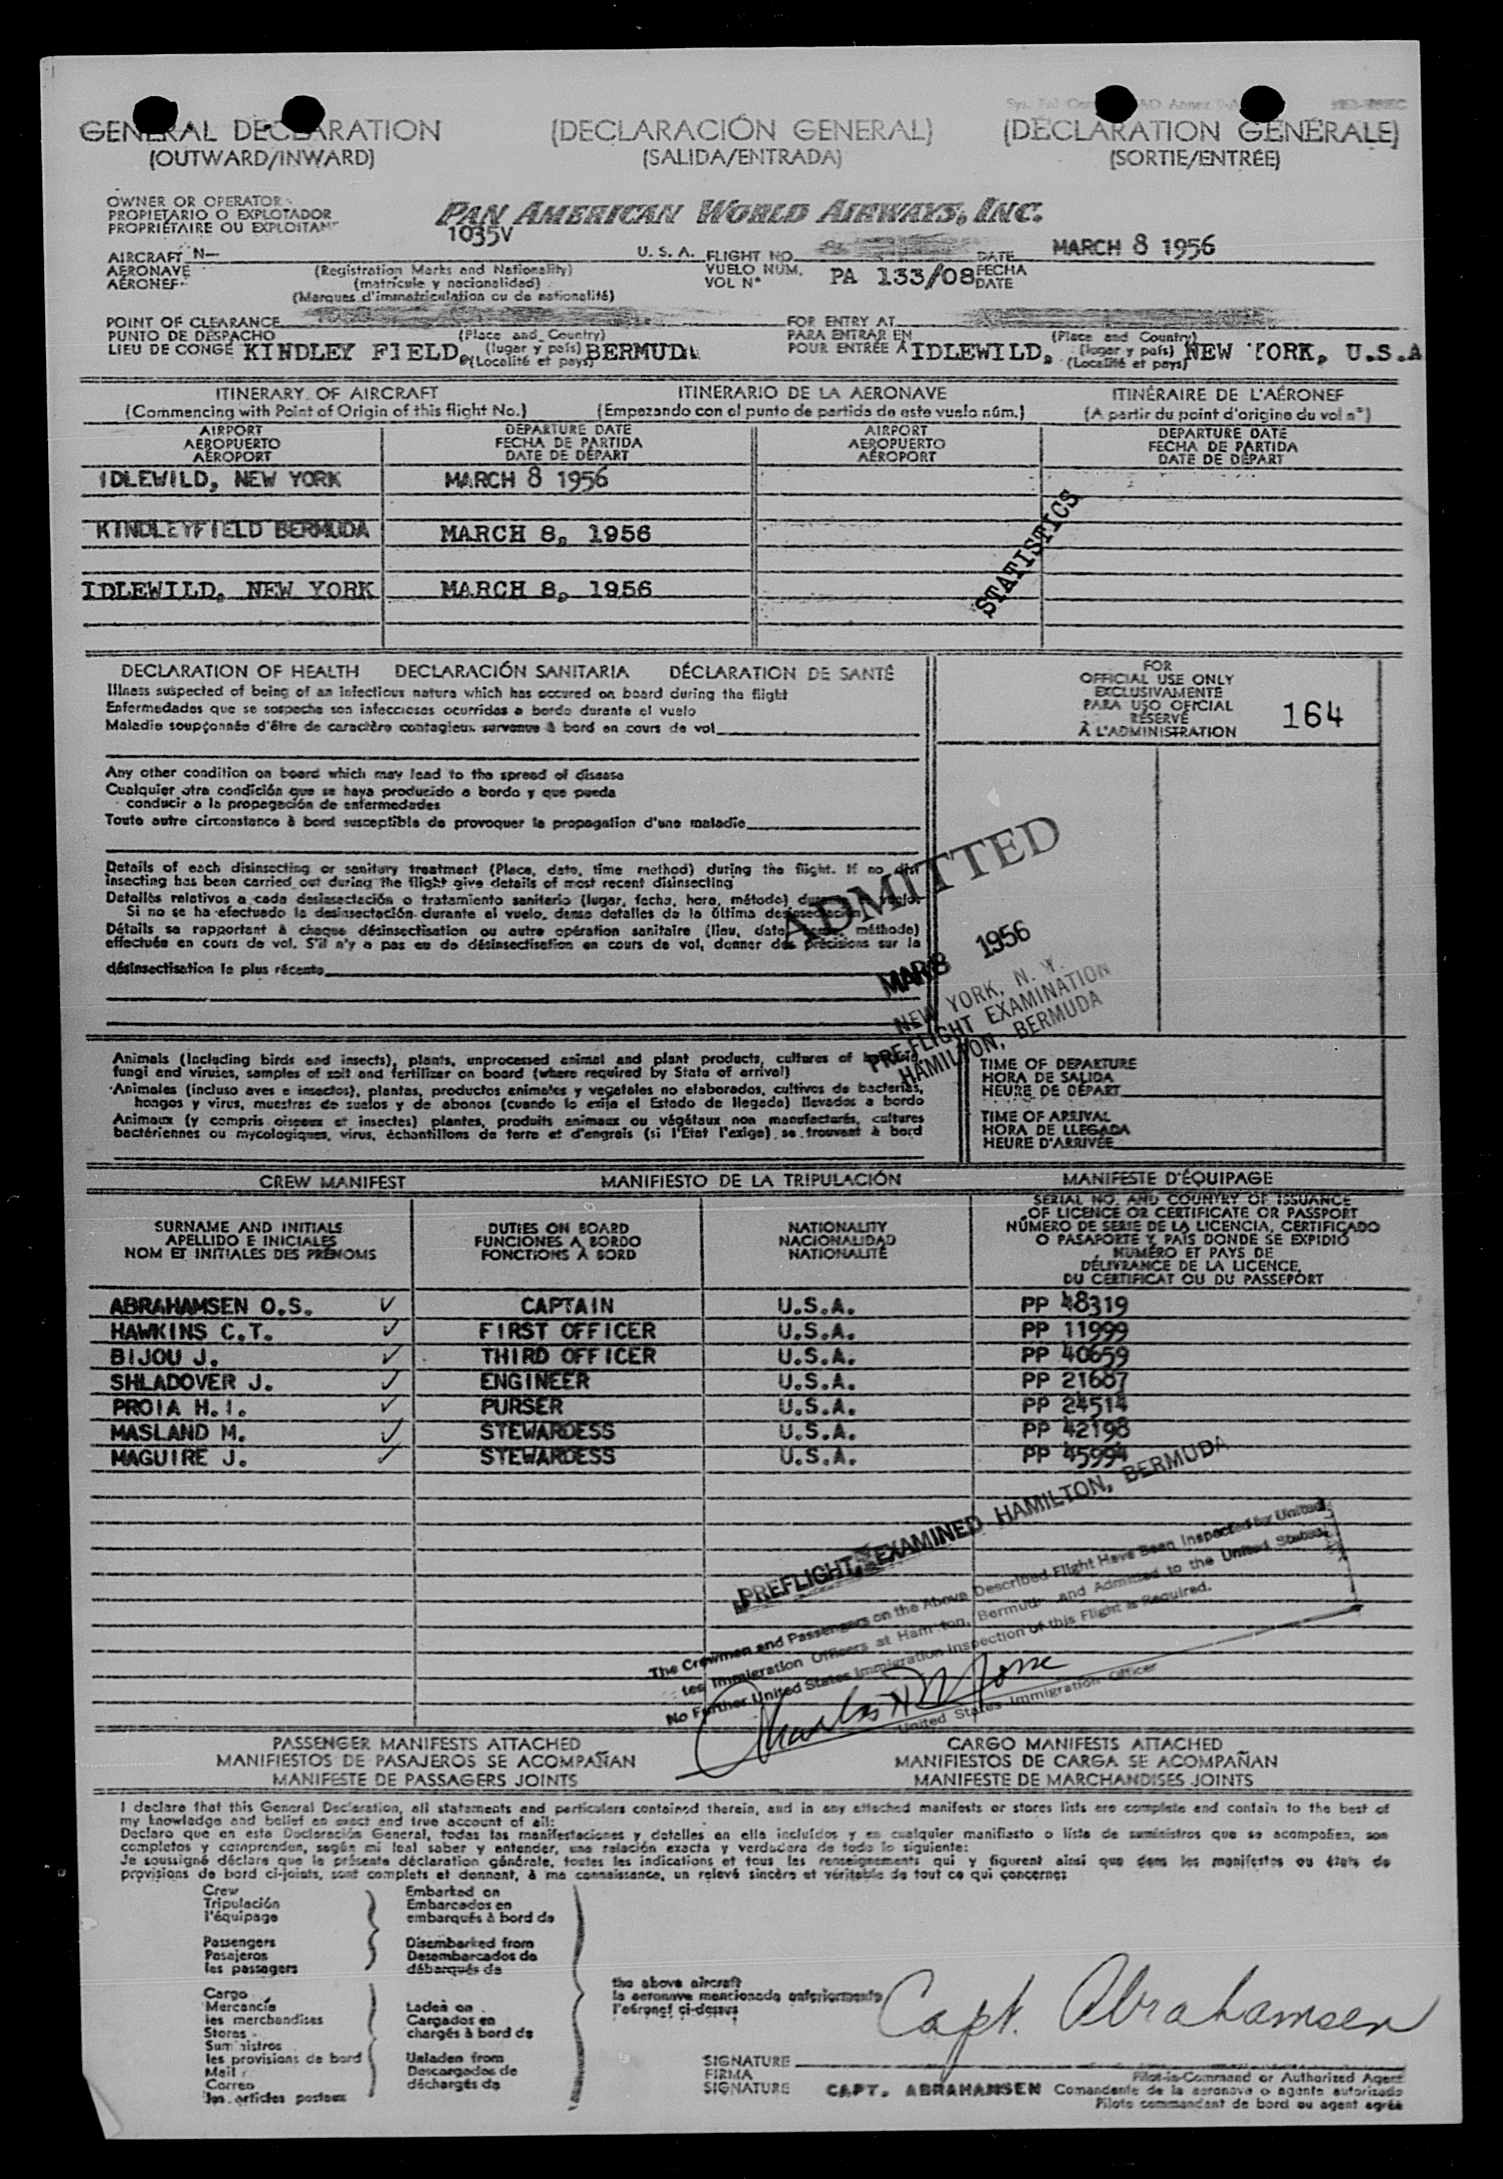 GENERAL DECLARATION (DECLARACIÓN GENERAL) (DÉCLARATION GÉNÉRALE)
(OUTWARD/INWARD) (SALIDA/ENTRADA) (SORTIE/ENTRÉE)
OWNER OR OPERATOR
PROPIETARIO O EXPLOTADOR
PROPRIÉTAIRE OU EXPLOITANT
PAN AMERICAN WORLD AIRWAYS, INC.
1035V
AIRCRAFT N— U. S. A. FLIGHT NO. DATE MARCH 8 1956
AERONAVE (Registration Marks and Nationality) VUELO NUM. PA 133/08 FECHA
AÉRONEF (matrícula y nacionalidad) VOL N° DATE
(Marques d'immatriculation ou de nationalité)
POINT OF CLEARANCE FOR ENTRY AT
PUNTO DE DESPACHO (Place and Country) PARA ENTRAR EN (Place and Country)
LIEU DE CONGÉ KINDLEY FIELD, (lugar y país) BERMUDA POUR ENTRÉE À IDLEWILD, (lugar y país) NEW YORK, U.S.A
(Localité et pays) (Localité et pays)
ITINERARY OF AIRCRAFT ITINERARIO DE LA AERONAVE ITINÉRAIRE DE L'AÉRONEF
(Commencing with Point of Origin of this flight No.) (Empezando con el punto de partida de este vuelo núm.) (A partir du point d'origine du vol n°)
AIRPORT DEPARTURE DATE AIRPORT DEPARTURE DATE
AEROPUERTO FECHA DE PARTIDA AEROPUERTO FECHA DE PARTIDA
AÉROPORT DATE DE DÉPART AÉROPORT DATE DE DÉPART
IDLEWILD, NEW YORK MARCH 8 1956
KINDLEYFIELD BERMUDA MARCH 8, 1956
IDLEWILD, NEW YORK MARCH 8, 1956
STATISTICS
DECLARATION OF HEALTH DECLARACIÓN SANITARIA DÉCLARATION DE SANTÉ
Illness suspected of being of an infectious nature which has occured on board during the flight
Enfermedades que se sospecha son infecciosas ocurridas a bordo durante el vuelo
Maladie soupçonnée d'être de caractère contagieux survenue à bord en cours de vol
FOR
OFFICIAL USE ONLY
EXCLUSIVAMENTE
PARA USO OFICIAL
RÉSERVÉ
À L'ADMINISTRATION
164
Any other condition on board which may lead to the spread of disease
Cualquier otra condición que se haya producido a bordo y que pueda
conducir a la propagación de enfermedades
Toute autre circonstance à bord susceptible de provoquer la propagation d'une maladie
Details of each disinsecting or sanitary treatment (Place, date, time method) during the flight. If no dis-
insecting has been carried out during the flight give details of most recent disinsecting
Detalles relativos a cada desinsectación o tratamiento sanitario (lugar, fecha, hora, método) durante el vuelo.
Si no se ha efectuado la desinsectación durante el vuelo, dense detalles de la última desinsectación
Détails se rapportant à chaque désinsectisation ou autre opération sanitaire (lieu, date, méthode)
effectuée en cours de vol. S'il n'y a pas eu de désinsectisation en cours de vol, donner des précisions sur la
désinsectisation la plus récente
ADMITTED
MAR 8 1956
NEW YORK, N. Y.
PRE-FLIGHT EXAMINATION
HAMILTON, BERMUDA
Animals (Including birds and insects), plants, unprocessed animal and plant products, cultures of bacteria,
fungi and viruses, samples of soil and fertilizer on board (where required by State of arrival)
Animales (incluso aves e insectos), plantas, productos animales y vegetales no elaborados, cultivos de bacterias,
hongos y virus, muestras de suelos y de abonos (cuando lo exija el Estado de llegada) llevados a bordo
Animaux (y compris oiseaux et insectes) plantes, produits animaux ou végétaux non manufacturés, cultures
bactériennes ou mycologiques, virus, échantillons de terre et d'engrais (si l'Etat l'exige) se trouvant à bord
TIME OF DEPARTURE
HORA DE SALIDA
HEURE DE DÉPART
TIME OF ARRIVAL
HORA DE LLEGADA
HEURE D'ARRIVÉE
CREW MANIFEST MANIFIESTO DE LA TRIPULACIÓN MANIFESTE D'ÉQUIPAGE
SURNAME AND INITIALS
APELLIDO E INICIALES
NOM ET INITIALES DES PRÉNOMS
DUTIES ON BOARD
FUNCIONES A BORDO
FONCTIONS À BORD
NATIONALITY
NACIONALIDAD
NATIONALITÉ
SERIAL NO. AND COUNTRY OF ISSUANCE
OF LICENCE OR CERTIFICATE OR PASSPORT
NÚMERO DE SERIE DE LA LICENCIA, CERTIFICADO
O PASAPORTE Y PAÍS DONDE SE EXPIDIÓ
NUMÉRO ET PAYS DE
DÉLIVRANCE DE LA LICENCE,
DU CERTIFICAT OU DU PASSEPORT
ABRAHAMSEN O.S. ✓ CAPTAIN U.S.A. PP 48319
HAWKINS C.T. ✓ FIRST OFFICER U.S.A. PP 11999
BIJOU J. ✓ THIRD OFFICER U.S.A. PP 40659
SHLADOVER J. ✓ ENGINEER U.S.A. PP 21687
PROIA H.I. ✓ PURSER U.S.A. PP 24514
MASLAND M. ✓ STEWARDESS U.S.A. PP 42198
MAGUIRE J. ✓ STEWARDESS U.S.A. PP 45994
PREFLIGHT EXAMINED HAMILTON, BERMUDA
The Crewmen and Passengers on the Above Described Flight Have Been Inspected by United
States Immigration Officers at Hamilton, Bermuda and Admitted to the United States.
No Further United States Immigration Inspection of this Flight is Required.
United States Immigration Officer
PASSENGER MANIFESTS ATTACHED CARGO MANIFESTS ATTACHED
MANIFIESTOS DE PASAJEROS SE ACOMPAÑAN MANIFIESTOS DE CARGA SE ACOMPAÑAN
MANIFESTE DE PASSAGERS JOINTS MANIFESTE DE MARCHANDISES JOINTS
I declare that this General Declaration, all statements and particulars contained therein, and in any attached manifests or stores lists are complete and contain to the best of
my knowledge and belief an exact and true account of all:
Declaro que en esta Declaración General, todas las manifestaciones y detalles en ella incluídos y en cualquier manifiesto o lista de suministros que se acompañen, son
completos y comprenden, según mi leal saber y entender, una relación exacta y verdadera de todo lo siguiente:
Je soussigné déclare que la présente déclaration générale, toutes les indications et tous les renseignements qui y figurent ainsi que dans les manifestes ou états de
provisions de bord ci-joints, sont complets et donnent, à ma connaissance, un relevé sincère et véritable de tout ce qui concerne:
Crew Embarked on
Tripulación Embarcados en
l'équipage embarqués à bord de
Passengers Disembarked from
Pasajeros Desembarcados de
les passagers débarqués de
the above aircraft
la aeronave mencionada anteriormente
l'aéronef ci-dessus
Cargo
Mercancía Laden on
les merchandises Cargados en
Stores chargés à bord de
Suministros
les provisions de bord Unladen from
Mail Descargados de
Correo déchargés de
les articles postaux
Capt. Abrahamsen
SIGNATURE
FIRMA
SIGNATURE CAPT. ABRAHAMSEN
Pilot-in-Command or Authorized Agent
Comandante de la aeronave o agente autorizado
Pilote commandant de bord ou agent agréé